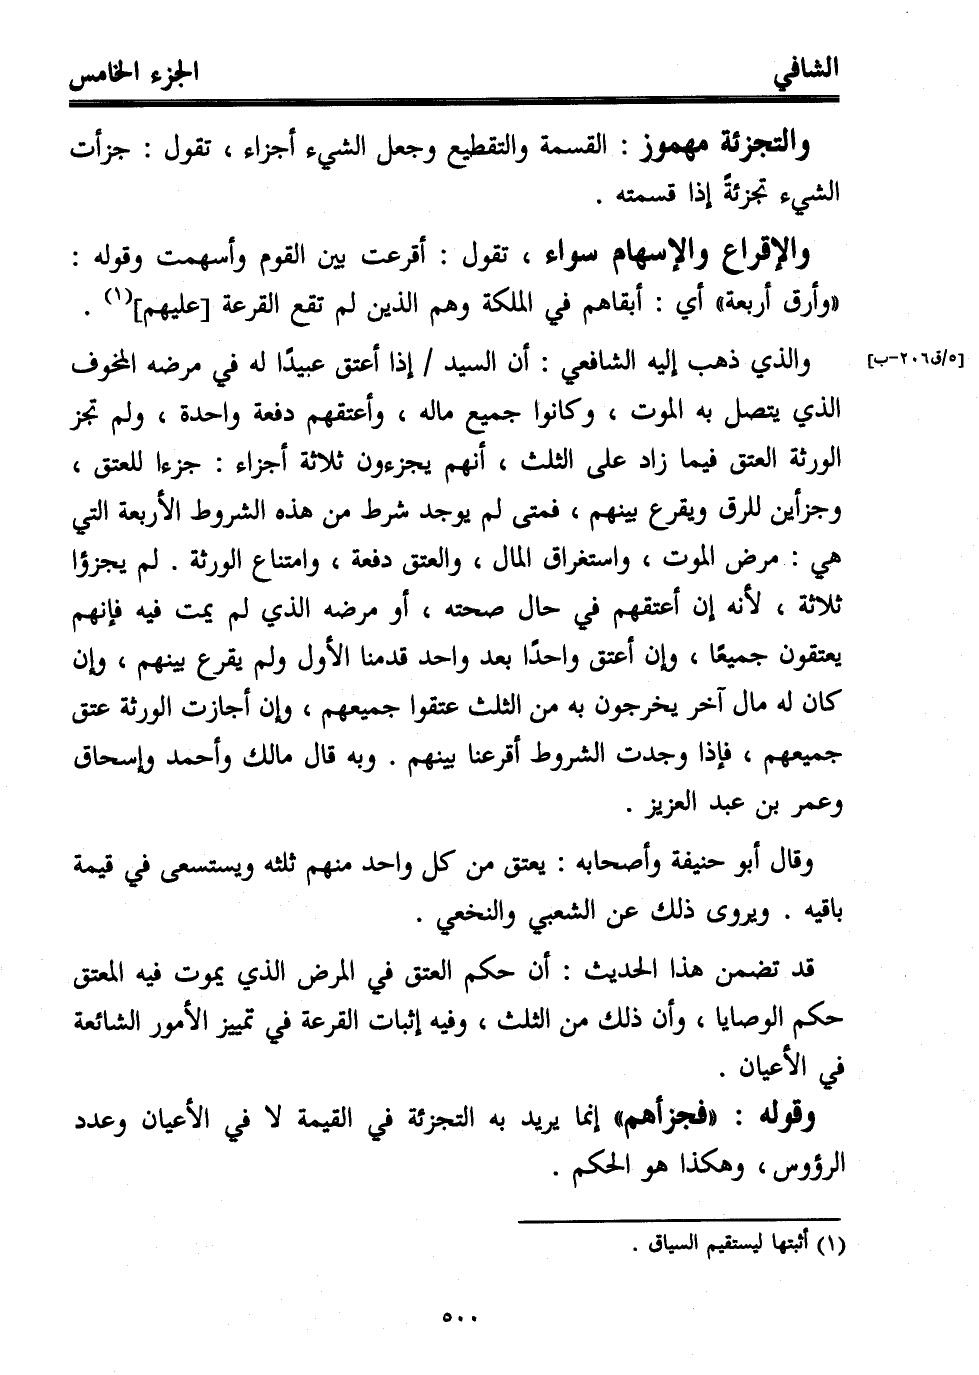 الشافي
الجزء الخامس
والتجزئة مهموز : القسمة والتقطيع وجعل الشيء أجزاء ، تقول : جزأت
الشيء تجزئةً إذا قسمته .
والإقراع والإسهام سواء ، تقول : أقرعت بين القوم وأسهمت وقوله :
«وأرق أربعة» أي : أبقاهم في الملكة وهم الذين لم تقع القرعة [عليهم](١) .
والذي ذهب إليه الشافعي : أن السيد / إذا أعتق عبيدًا له في مرضه المخوف
[٥/ق٢٠٦-ب]
الذي يتصل به الموت ، وكانوا جميع ماله ، وأعتقهم دفعة واحدة ، ولم تجز
الورثة العتق فيما زاد على الثلث ، أنهم يجزءون ثلاثة أجزاء : جزءا للعتق ،
وجزأين للرق ويقرع بينهم ، فمتى لم يوجد شرط من هذه الشروط الأربعة التي
هي : مرض الموت ، واستغراق المال ، والعتق دفعة ، وامتناع الورثة . لم يجزؤا
ثلاثة ، لأنه إن أعتقهم في حال صحته ، أو مرضه الذي لم يمت فيه فإنهم
يعتقون جميعًا ، وإن أعتق واحدًا بعد واحد قدمنا الأول ولم يقرع بينهم ، وإن
كان له مال آخر يخرجون به من الثلث عتقوا جميعهم ، وإن أجازت الورثة عتق
جميعهم ، فإذا وجدت الشروط أقرعنا بينهم . وبه قال مالك وأحمد وإسحاق
وعمر بن عبد العزيز .
وقال أبو حنيفة وأصحابه : يعتق من كل واحد منهم ثلثه ويستسعى في قيمة
باقيه . ويروى ذلك عن الشعبي والنخعي .
قد تضمن هذا الحديث : أن حكم العتق في المرض الذي يموت فيه المعتق
حكم الوصايا ، وأن ذلك من الثلث ، وفيه إثبات القرعة في تمييز الأمور الشائعة
في الأعيان .
وقوله : «فجزأهم» إنما يريد به التجزئة في القيمة لا في الأعيان وعدد
الرؤوس ، وهكذا هو الحكم .
(١) أثبتها ليستقيم السياق .
٥٠٠